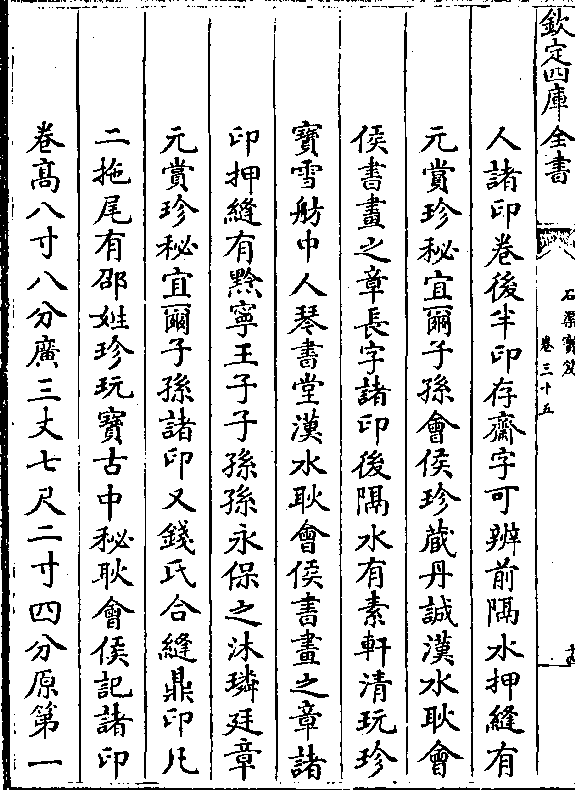 欽定四庫全書
石渠寶笈
卷三十五
人諸印卷後半印存齋字可辨前隔水押縫有
元賞珍秘宜爾子孫會侯珍藏丹誠漢水耿會
侯書畫之章長字諸印後隔水有素軒清玩珍
寶雪舫中人琴書堂漢水耿會侯書畫之章諸
印押縫有黔寧王子子孫孫永保之沐璘廷章
元賞珍秘宜爾子孫諸印又錢氏合縫鼎印凡
二拖尾有邵姓珍玩寶古中秘耿會侯記諸印
卷高八寸八分廣三丈七尺二寸四分原第一